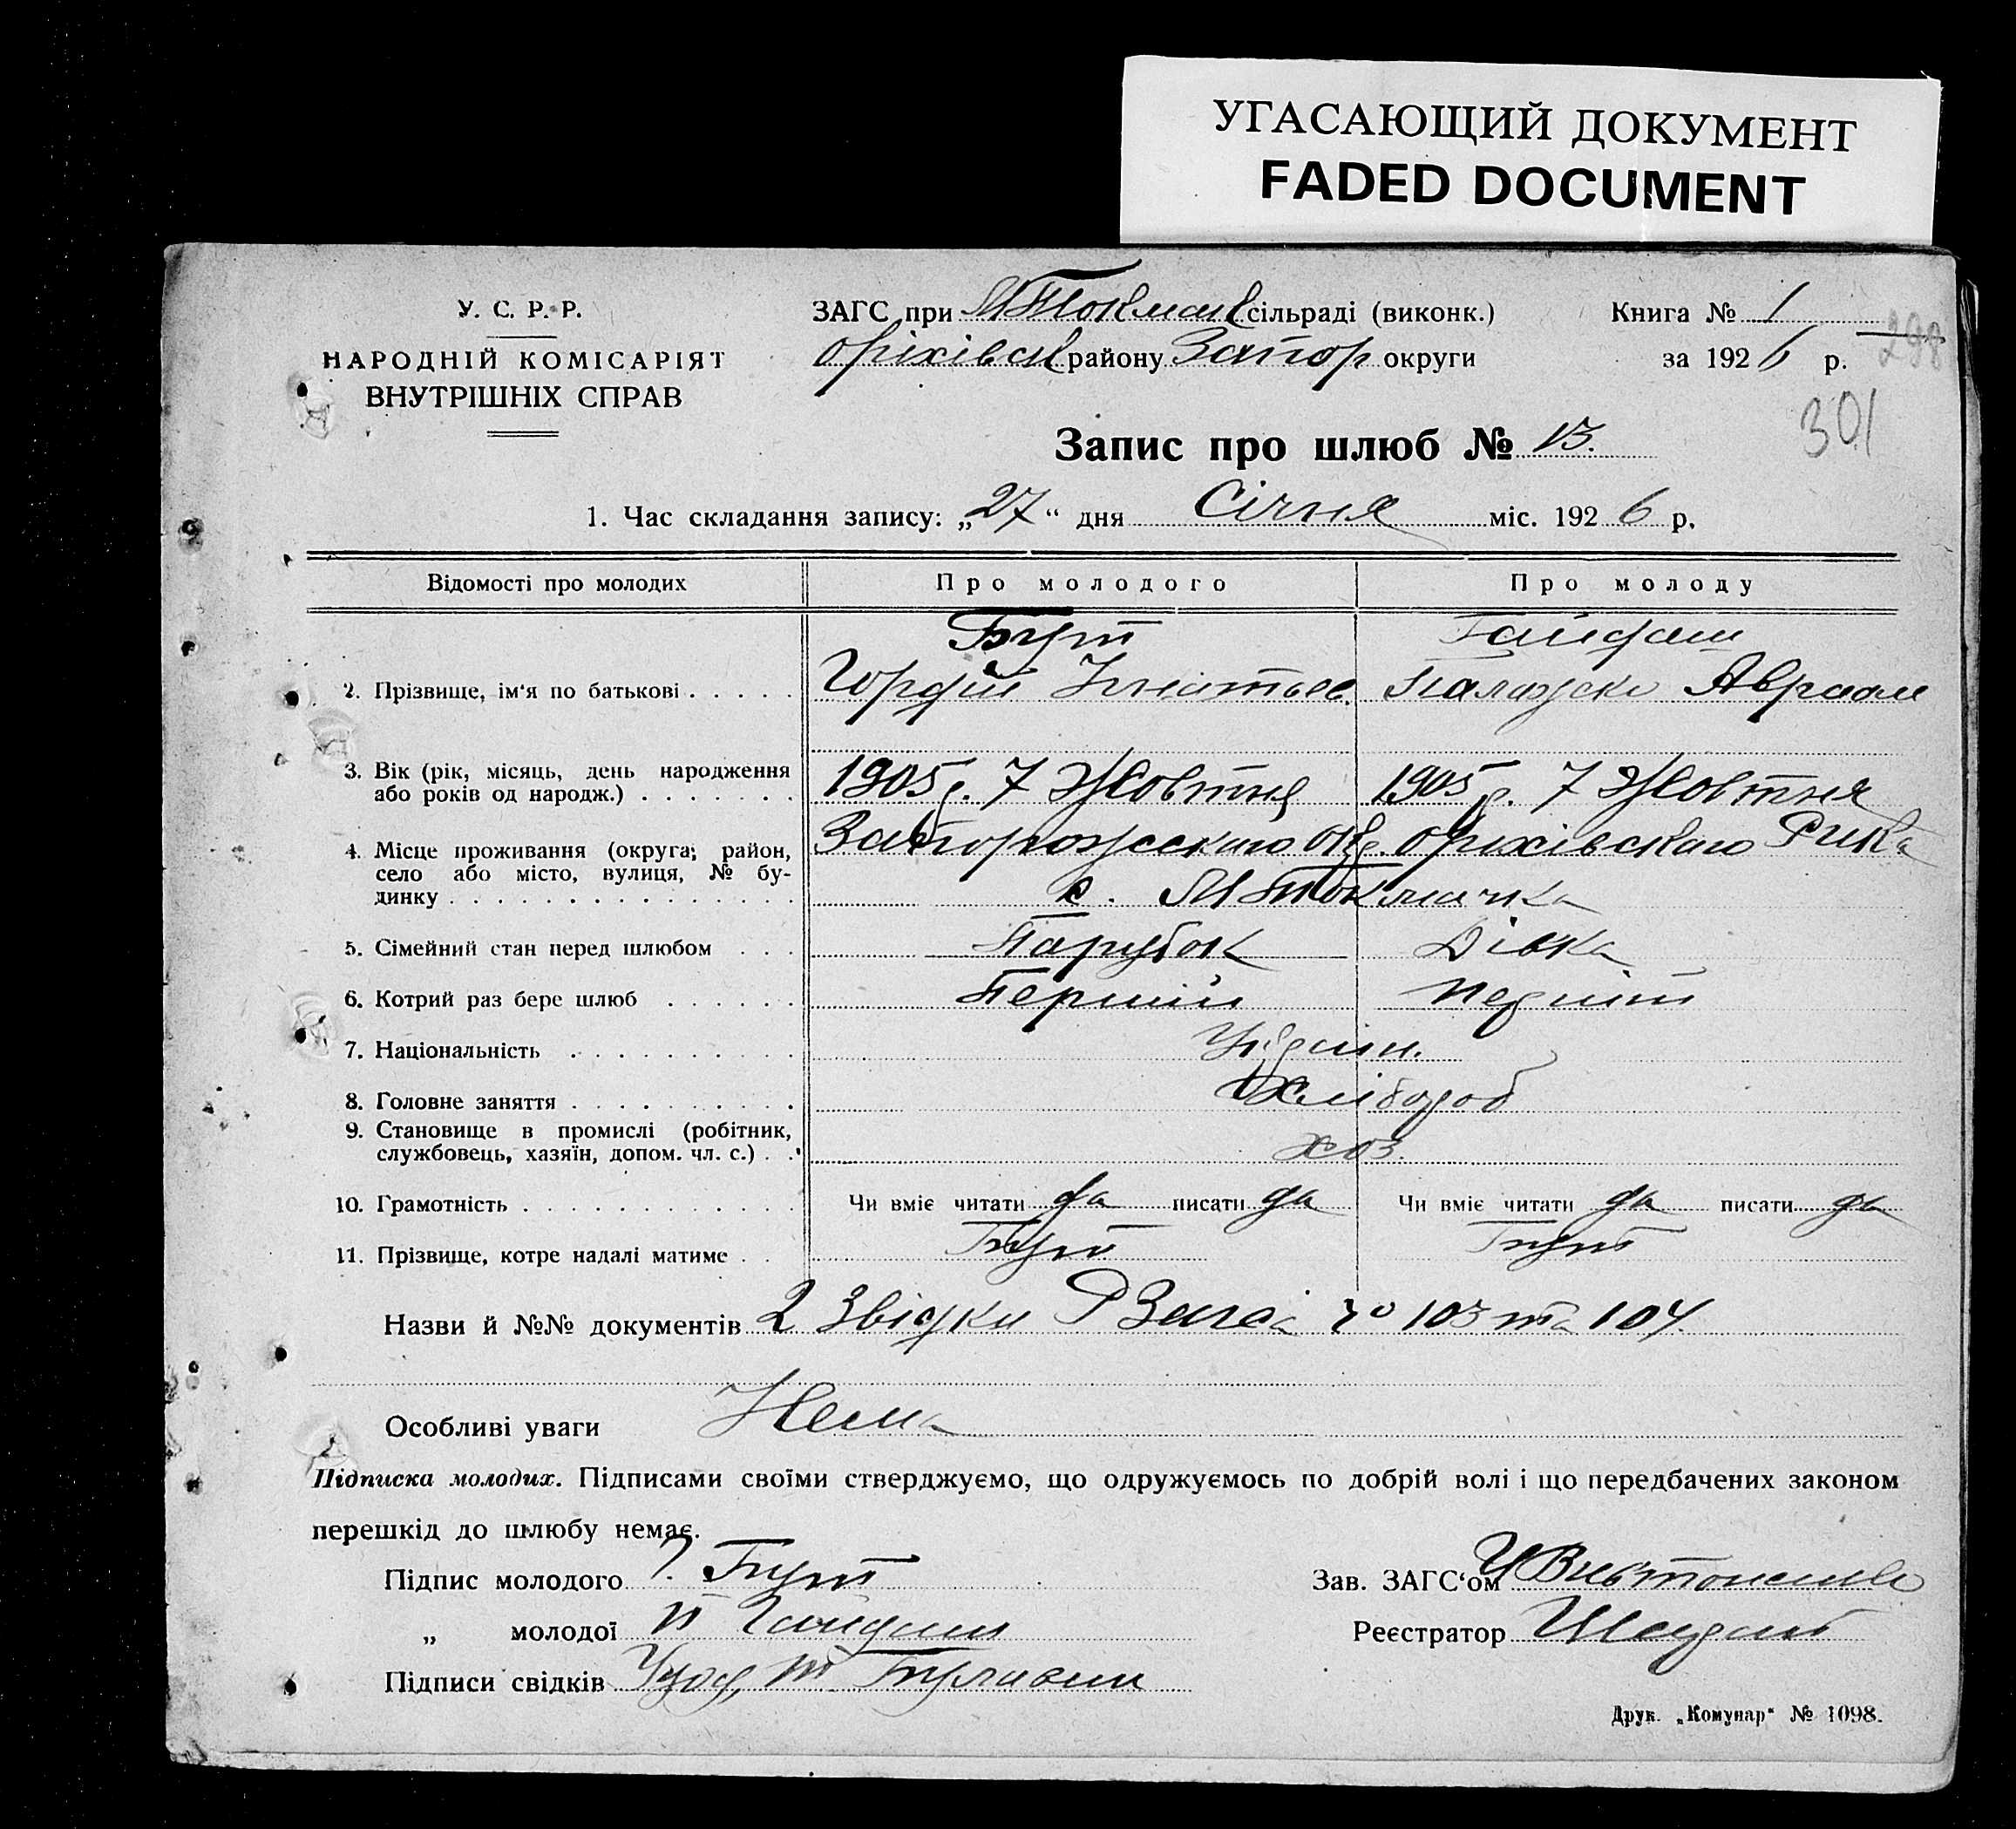 УГАСАЮЩИЙ ДОКУМЕНТ
FADED DOCUMENT
У. С. Р. Р.
НАРОДНІЙ КОМІСАРІЯТ
ВНУТРІШНІХ СПРАВ
ЗАГС при МТокмац сільраді (виконк.) Книга № 1
Оріхівск району Запор округи за 1926 р.
298
301
Запис про шлюб № 13.
1. Час складання запису: „27“ дня Січня міс. 1926 р.
Відомості про молодих Про молодого Про молоду
Бут Гайдаш
2. Прізвище, ім‘я по батькові Гордій Ігнатьев. Палажка Авраам
3. Вік (рік, місяць, день народження
або років од народж.) 1905 р. 7 Жовтня 1905 р. 7 Жовтня
4. Місце проживання (округа; район, Запорожського Окр. Оріхівського Рика
село або місто, вулиця, № бу-
динку с. МТокмачка
5. Сімейний стан перед шлюбом Парубок Дівка
6. Котрий раз бере шлюб Перший Перший
7. Національність Україн.
8. Головне заняття Хлібороб
9. Становище в промислі (робітник,
службовець, хазяїн, допом. чл. с.) хоз.
10. Грамотність Чи вміє читати да писати да Чи вміє читати да писати да
11. Прізвище, котре надалі матиме Бут Бут
Назви й №№ документів 2 Звідки РЗагса № 103 та 104.
Особливі уваги Нема
Підписка молодих. Підписами своїми стверджуємо, що одружуємось по добрій волі і що передбачених законом
перешкід до шлюбу немає.
Підпис молодого Г. Бут Зав. ЗАГС‘ом
„ молодої П Гайдаш Реєстратор
Підписи свідків
Друк. „Комунар“ № 1098.